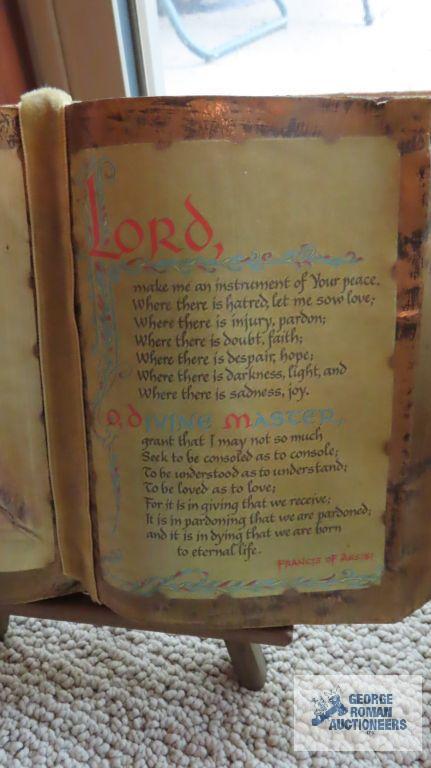 Lord,
make me an instrument of Your peace.
Where there is hatred, let me sow love;
Where there is injury, pardon;
Where there is doubt, faith;
Where there is despair, hope;
Where there is darkness, light, and
Where there is sadness, joy.
O, divine Master,
grant that I may not so much
Seek to be consoled as to console;
To be understood as to understand;
To be loved as to love;
For it is in giving that we receive;
It is in pardoning that we are pardoned;
and it is in dying that we are born
to eternal life.
Francis of Assisi
GEORGE
ROMAN
AUCTIONEERS